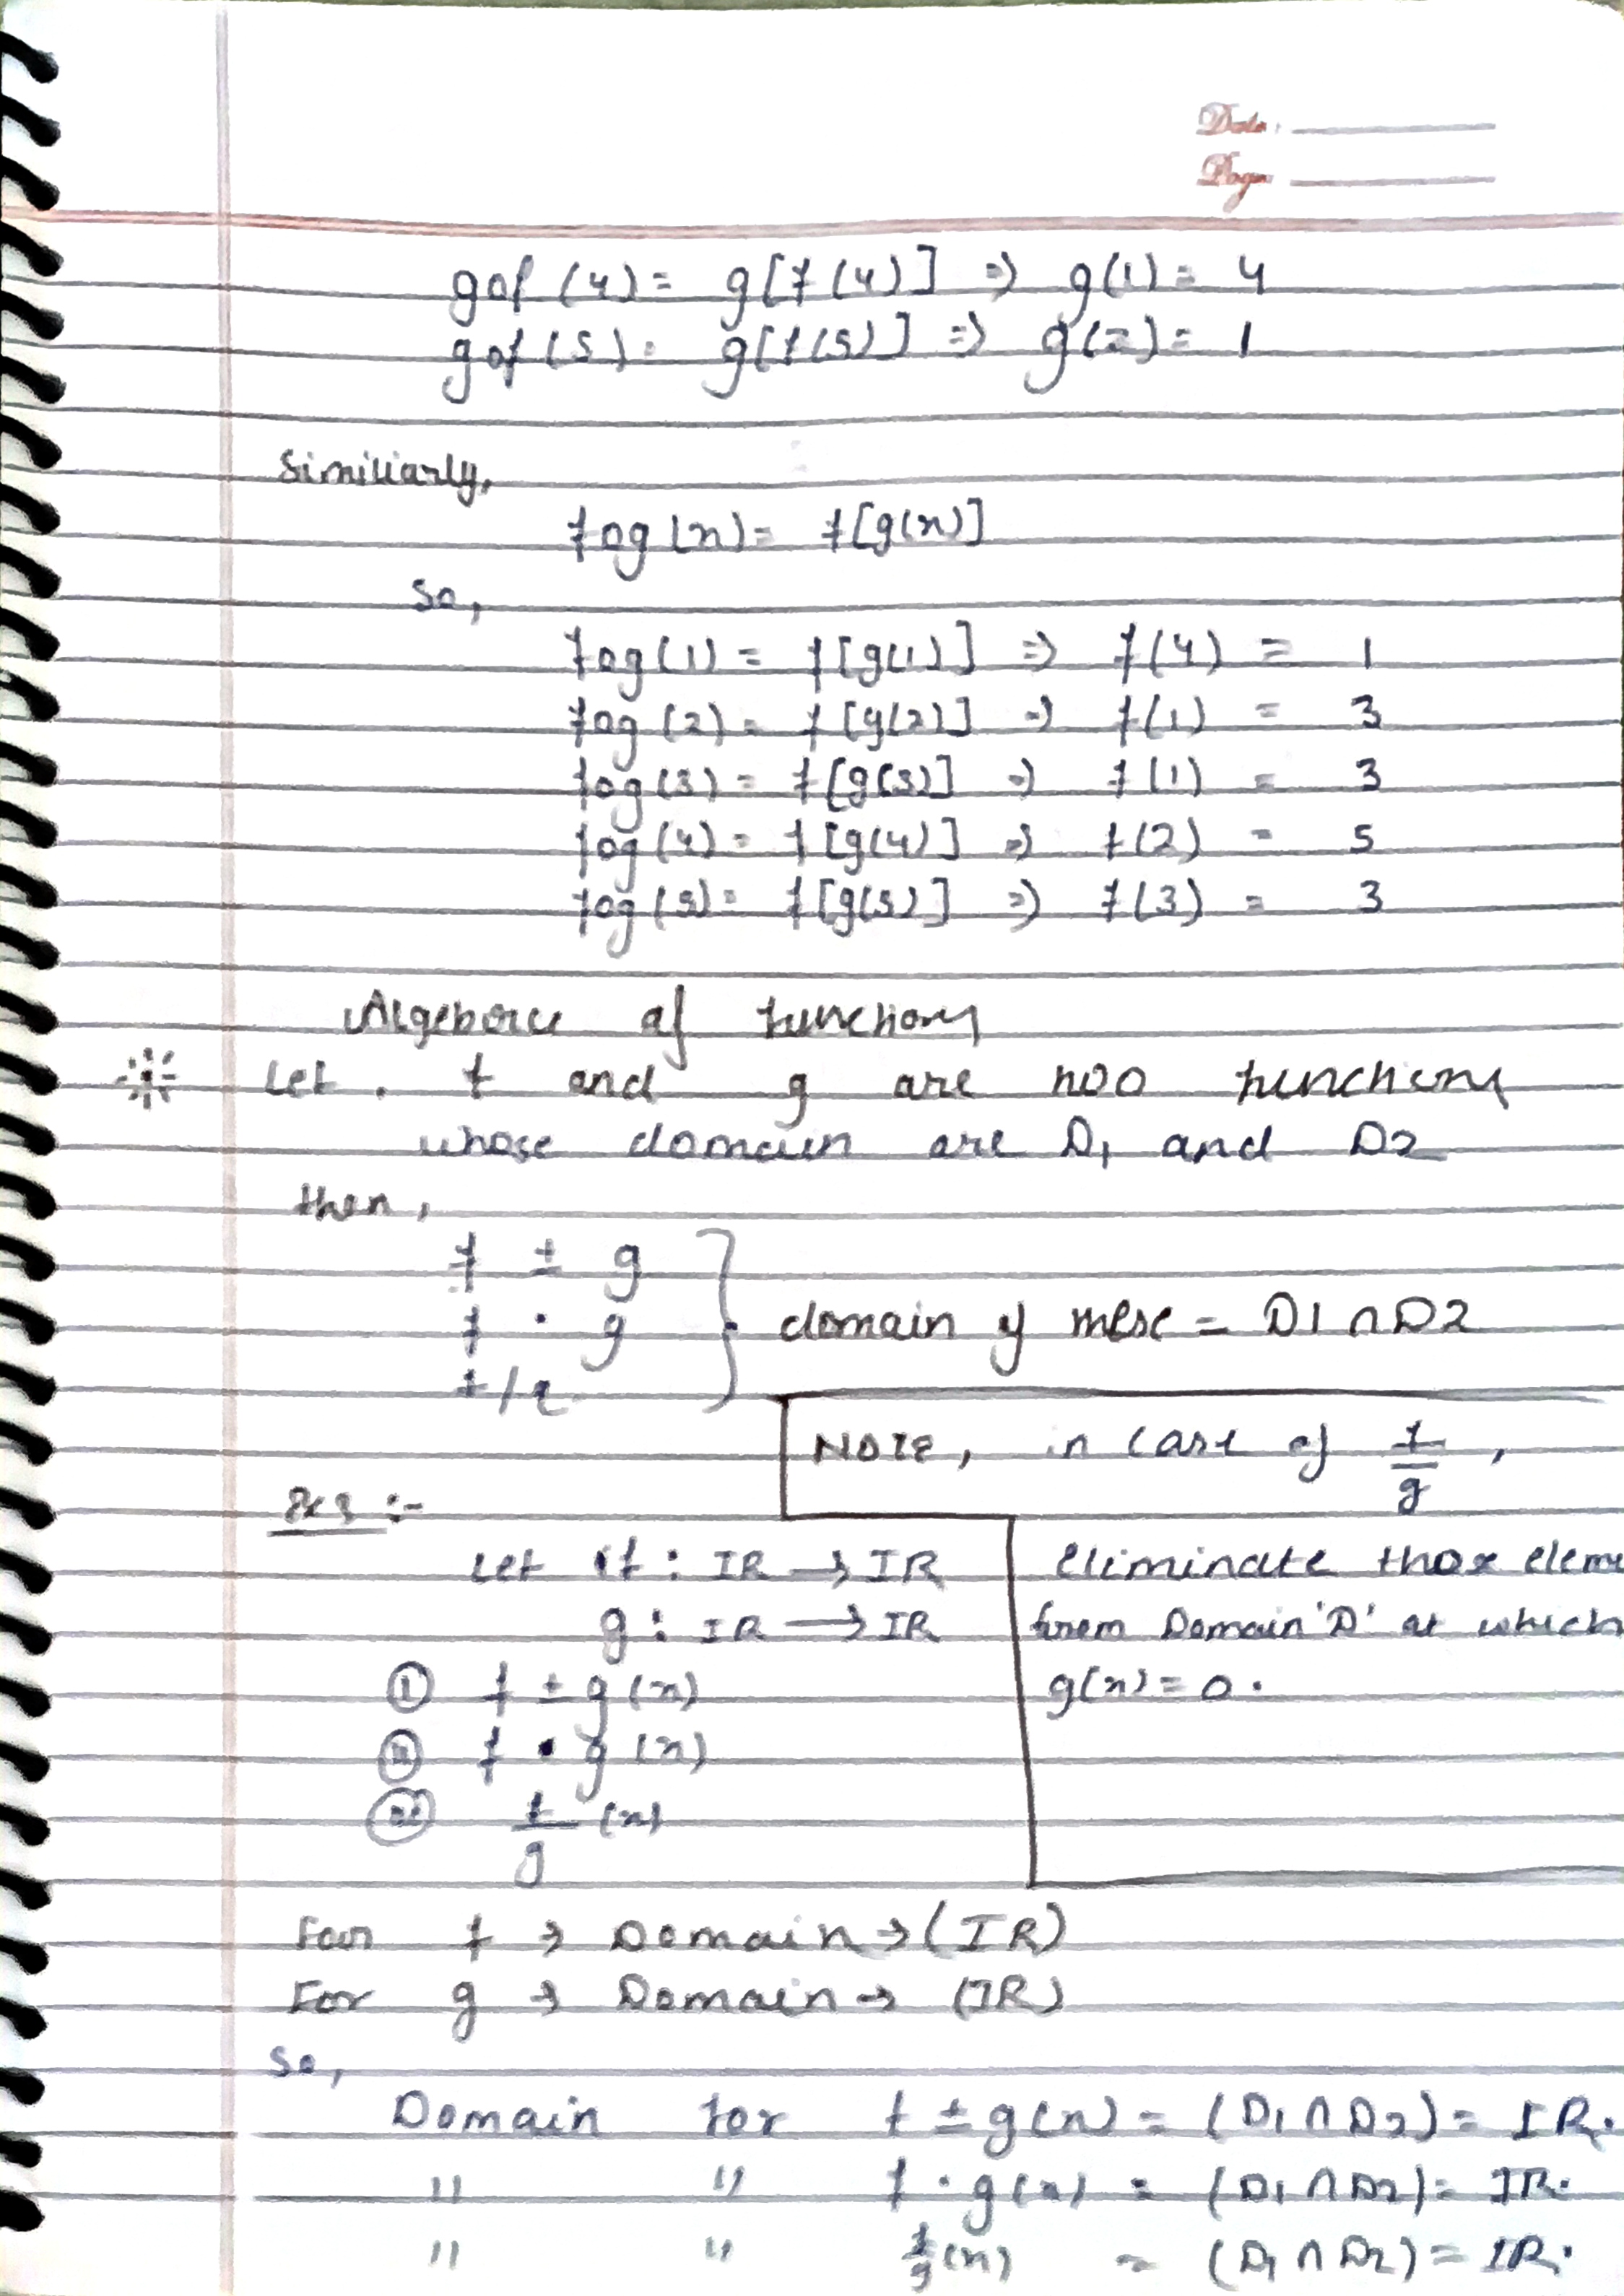 Date:
Page
gof (4) = g[f(4)] => g(1) = 4
gof (5) = g[f(5)] => g(2) = 1
Similiarly,
fog (x) = f[g(x)]
So,
fog (1) = f[g(1)] => f(4) = 1
fog (2) = f[g(2)] => f(1) = 3
fog (3) = f[g(3)] => f(1) = 3
fog (4) = f[g(4)] => f(2) = 5
fog (5) = f[g(5)] => f(3) = 3
of functions
Let. f and g are two functions
whose domain are D1 and D2
then,
f ± g
f · g
domain of these = D1 ∩ D2
f/g
NOTE, in case of f/g ,
:-
Let f : IR → IR
eliminate those eleme
g : IR → IR
from Domain 'D' at which
① f ± g (x)
g(x) = 0.
② f • g (x)
f/g (x)
For f → Domain → (IR)
For g → Domain → (IR)
So,
Domain for f ± g(x) = (D1 ∩ D2) = IR.
" " f · g(x) = (D1 ∩ D2) = IR.
" " f/g (x) = (D1 ∩ D2) = IR.